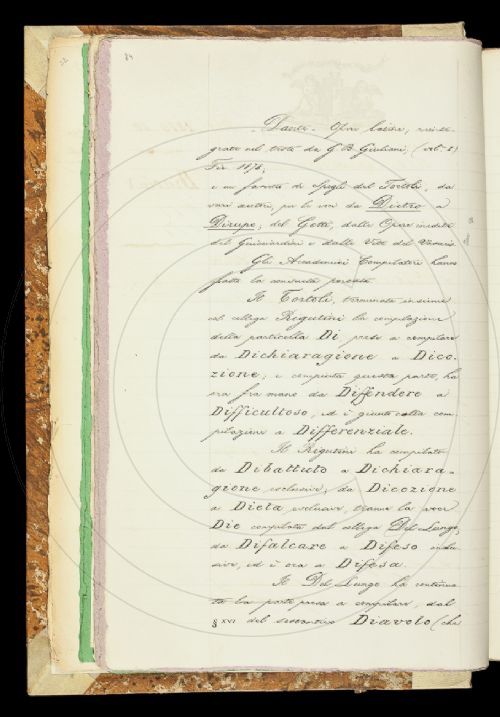 84
Dante - Opere latine, reinte-
grate nel testo da G. B. Giuliani, (vol. I)
Fir. 1878;
e un fascetto di spogli del Tortoli, da
vari autori, per le voci da Dietro a
Dirupo; del Gotti, dalle Opere inedite
del Guicciardini e dalle Vite del Vasari.
Gli Accademici Compilatori hanno
fatto la consueta
Il Tortoli, terminata insieme
col collega Rigutini la compilazione
della particella Di prese a compilare
da Dichiaragione a Dico-
zione; e compiuta questa parte, ha
ora fra mano da Diffendere a
Difficultoso, ed è giunto colla com-
pilazione a Differenziale.
Il Rigutini ha compilato
da Dibattuto a Dichiara-
gione esclusive; da Dicozione
a Dieta esclusive, tranne la voce
Die compilata dal collega Del Lungo,
da Difalcare a Difeso inclu-
sive, ed è ora a Difesa.
Il Del Lungo ha continua-
to la parte presa a compilare, dal
§ XVI del sostantivo Diavolo (che